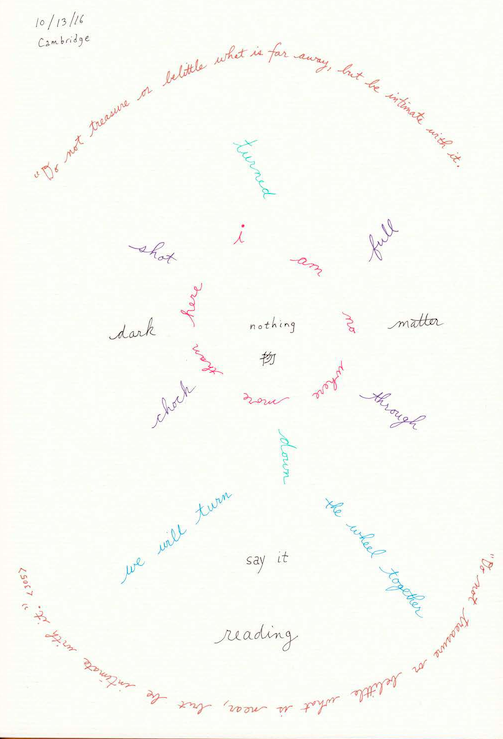 10/13/16
Cambridge
"Do not treasure or belittle what is far away, but be intimate with it.
turned
i
am
no
where
more
than
here
shot
full
dark
nothing
matter
物
chock
through
down
we will turn
the wheel together
say it
reading
"Do not treasure or belittle what is near, but be intimate with it."